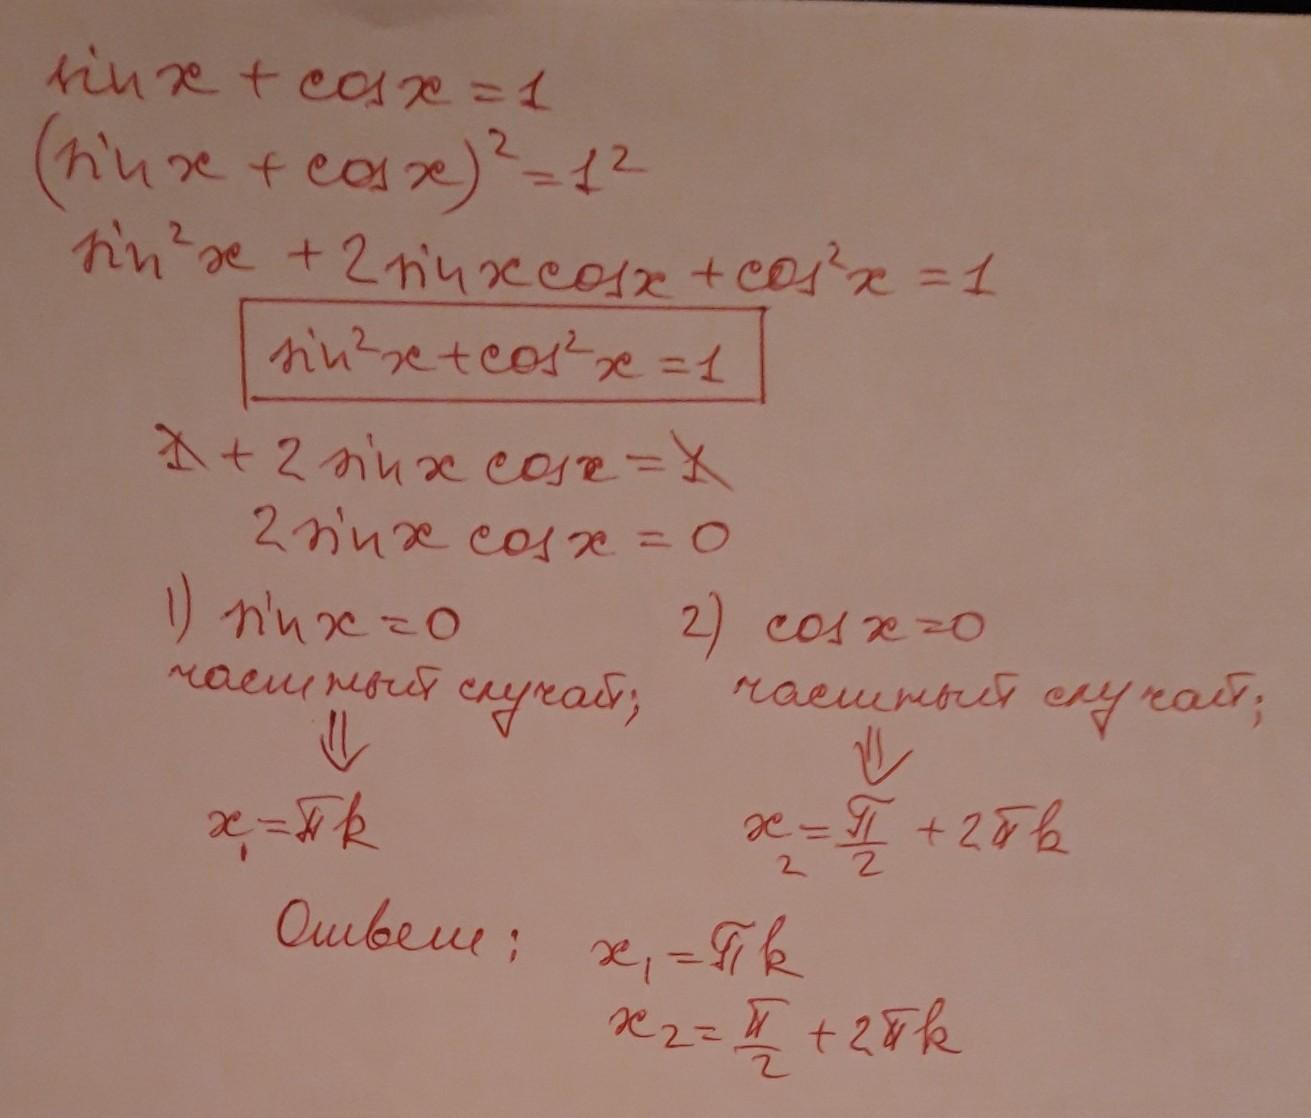 sin x + cos x = 1
(sin x + cos x)² = 1²
sin²x + 2 sin x cos x + cos²x = 1
sin²x + cos²x = 1
1 + 2 sin x cos x = 1
2 sin x cos x = 0
1) sin x = 0 2) cos x = 0
частный случай; частный случай;
⇓ ⇓
x₁ = πk x₂ = π/2 + 2πk
Ответ: x₁ = πk
x₂ = π/2 + 2πk